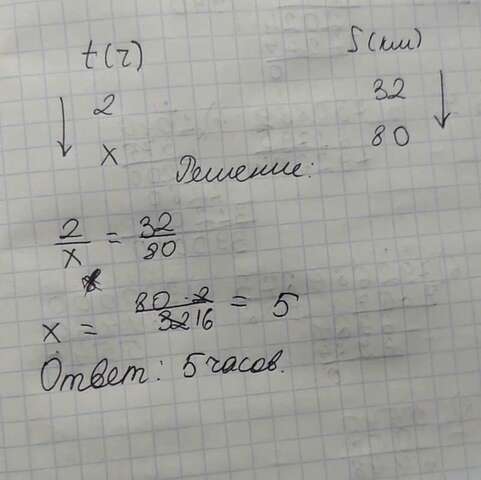 t(ч) S(км)
2 32
x 80
Решение:
2/x = 32/80
x = 80·2/32 16 = 5
Ответ: 5 часов.